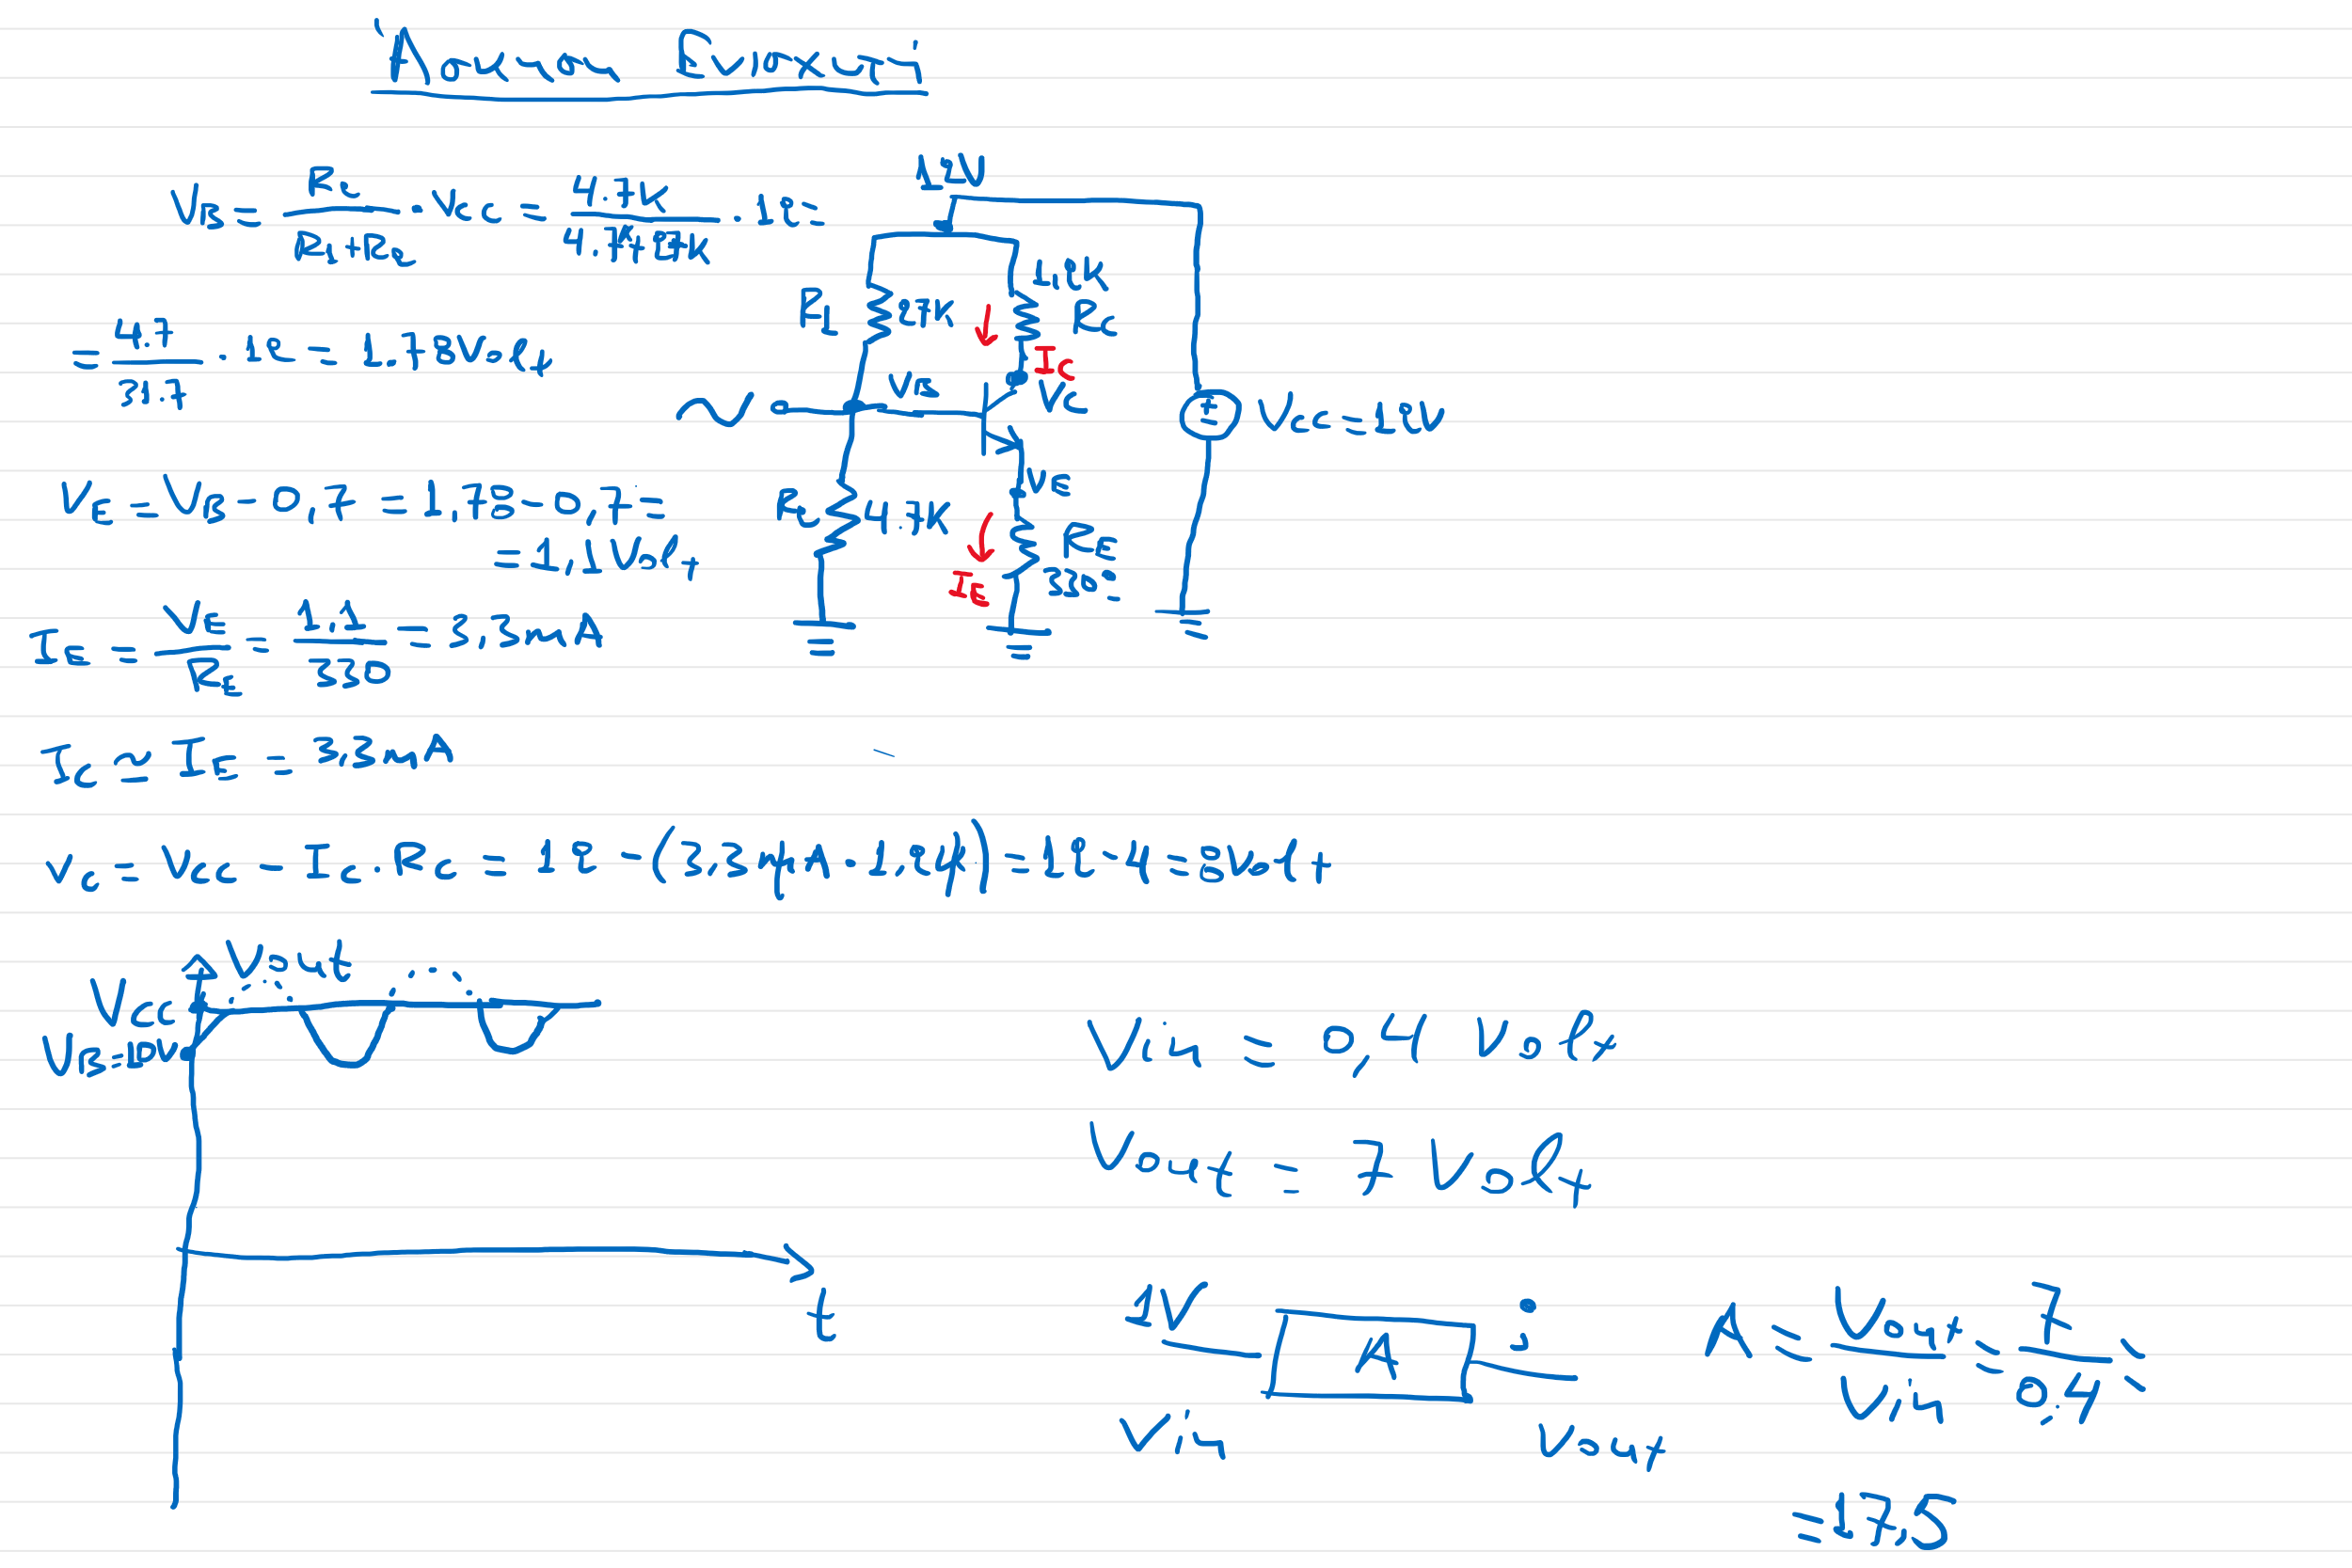 Άσκηση Ενισχυτή
V_B = R_2 / (R_1 + R_2) · V_CC = 4.7K / (4.7K + 27K) · 12 =
= 4.7 / 31.7 · 12 = 1.78 Volt
V_E = V_B - 0,7 = 1,78 - 0,7 =
= 1,1 Volt
I_E = V_E / R_E = 1.1 / 330 = 3,3mA
I_C ≃ I_E = 3,3mA
V_C = V_CC - I_C · R_C = 12 - (3,3mA · 1,2K) = 12 - 4 = 8Volt
12V
R_1 27K
1,2K
R_C
I_C
V_B
V_C
V_CC = 12V
V_E
R_2 4.7K
R_E
330Ω
I_E
V_CC
Vout
V_B = 10V
t
Vin = 0,4 Volt
Vout = 7 Volt
1V
A
;
Vin
Vout
A = Vout / Vin = 7 / 0.4 =
= 17,5